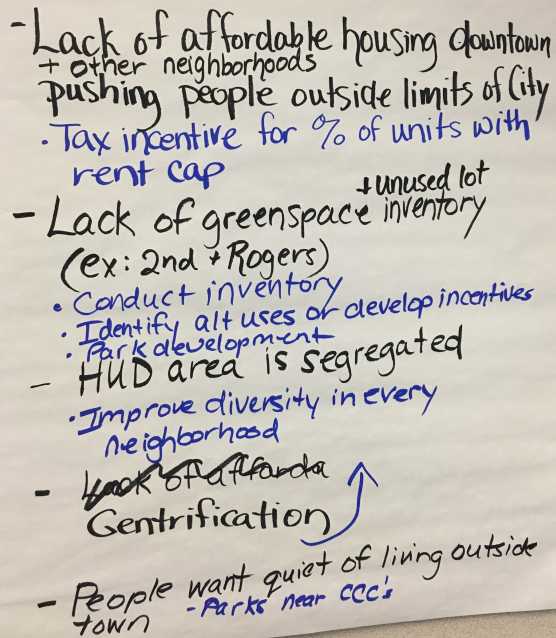 - Lack of affordable housing downtown
+ other neighborhoods
pushing people outside limits of City
• Tax incentive for % of units with
rent cap
- Lack of greenspace + unused lot inventory
(ex: 2nd + Rogers)
• Conduct inventory
• Identify alt uses or develop incentives
• Park development
- HUD area is segregated
• Improve diversity in every
neighborhood
- Lack of afforda
Gentrification
- People want quiet of living outside
town - Parks near CCC's